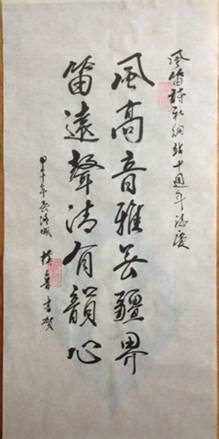 風笛詩社網站十週年誌慶
風高音雅無疆界
笛遠聲清有韻心
甲午年
吉賀